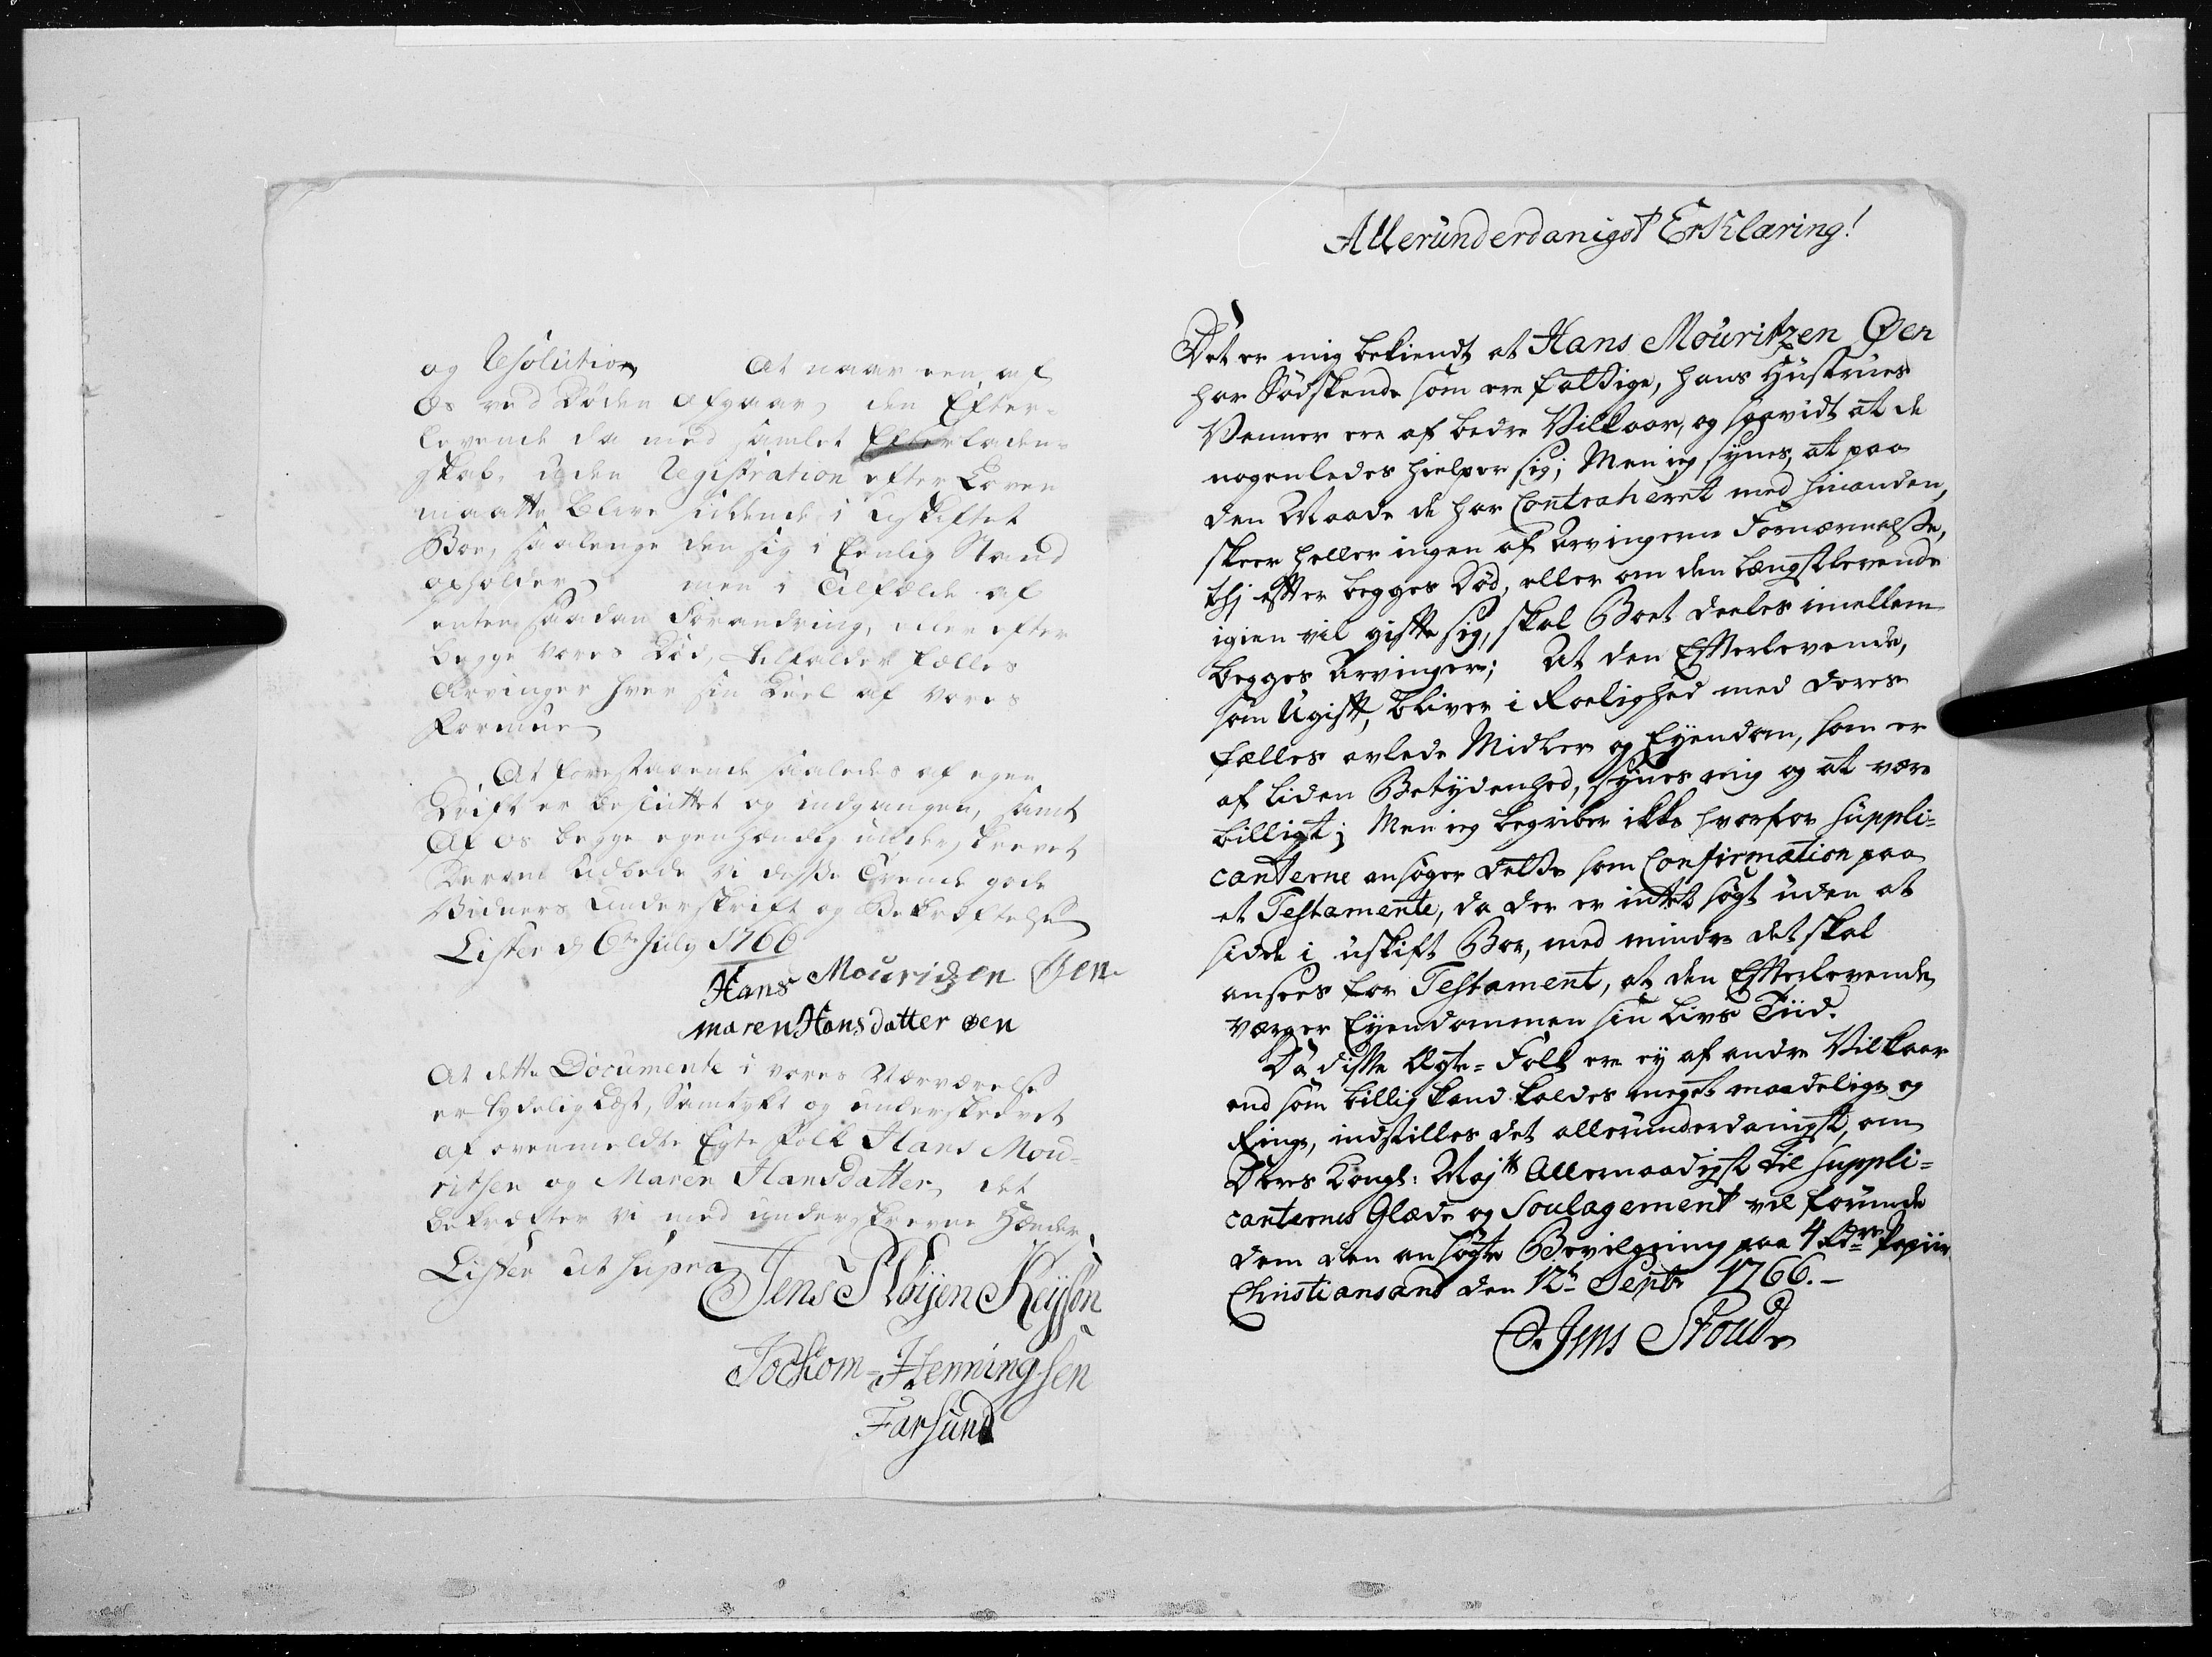 og Resolution At naar een af
Os ved Døden afgaar, den Efter-
levende da med samlet Efterladen-
skab, uden Registration efter Loven
maatte blive siddende i uskiftet
Boe, saalenge den sig i Eenlig Stand
opholder, men i Tilfælde af
enten saadan Forandring, eller efter
begge vores Død, tilfalder fælles
Arvinger hver sin Deel af vores
Formue
At forestaaende saaledes af egen
Drift er besluttet og indgangen, samt
Af os begge egenhændig underskrevet
Derom udbede vi disse Tvende gode
Vidners Underskrift og Bekræftelse
Lister d 6te July 1766
Hans Mouridzen Øen
maren Hans datter øen
At dette Documente i vores Nærværelse
er lydelig Læst, Samtykt og underskrevet
af ovenmeldte Egte folk Hans Mou-
ritsen og Maren Hansdatter, det
bekræfter vi med underskrevne Hænder
Lister Ut supra
Jens Pløijen Keijson
Jochom-Henningsen
Farsund
Allerunderdanigst Erklæring!
Det er mig bekiendt at Hans Mouritzen Øen
har Sødskende som ere fattige, hans Hustrues
Venner ere af bedre Vilkaar, og saavidt at de
nogenledes hielper sig; Men ieg synes, at paa
den Maade de har Contraheret med hinanden,
skeer heller ingen af Arvingerne Fornærmelse,
thi efter begges Død, eller om den Længstlevende
igien vil gifte sig, skal Boet deeles imellem
begges Arvinger; At den Efterlevende,
som Ugift, bliver i Roelighed med deres
fælles avlede Midler og Eyendom, som er
af liden Betydenhed, synes mig og at være
billigt; Men ieg begriber ikke hvorfor Suppli-
canterne ansøger dette som Confirmation paa
et Testamente, da der er intet søgt uden at
sidde i uskift Boe, med mindre det skal
ansees for Testament, at den Efterlevende
værger Eyendommen sin Livs Tiid.
Da disse Ægte-Folk ere ey af andre Vilkaar
end som billig kand kaldes meget maadelige og
Ringe, indstilles det allerunderdanigst, om
Deres Kongl: Majtt Allernaadigst til Suppli-
canternes Glæde og Soulagement vil forunde
dem den ansøgte Bevilgning paa 4 Papiir
Christiansand den 12te Septr 1766.-
Jens Stoud